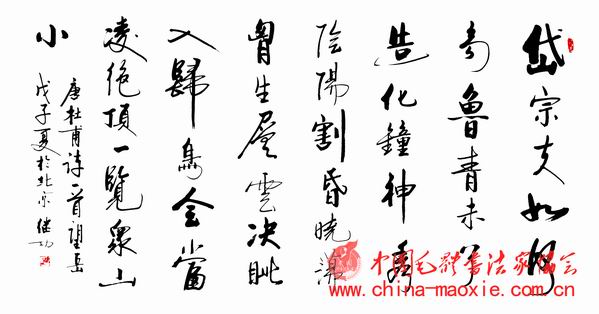 岱宗夫如何
齐魯青未了
造化鐘神秀
陰陽割昏曉盪
胷生層雲决眦
入歸鳥會當
凌绝頂一覽衆山
小
唐杜甫诗一首望岳
戊子夏於北京继功
中國毛體書法家協会
www.china-maoxie.com.cn